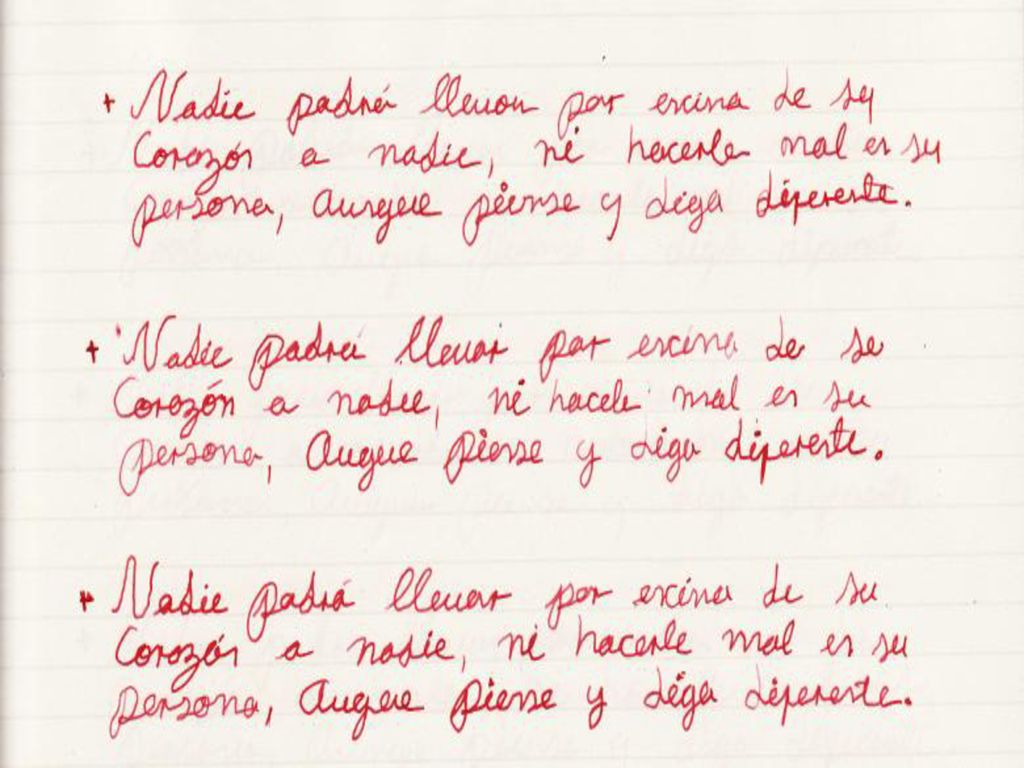 + Nadie padrá llevar por encina de su
Corazón a nadie, ni hacerle mal en su
persona, aunque piense y diga diferente.
+ Nadie padrá llevar por encina de su
Corazón a nadie, ni hacele mal en su
persona, Augue piense y diga diferente.
+ Nadie padrá llevar por encina de su
Corazón a nadie, ni hacerle mal en su
persona, Augue piense y diga diferente.